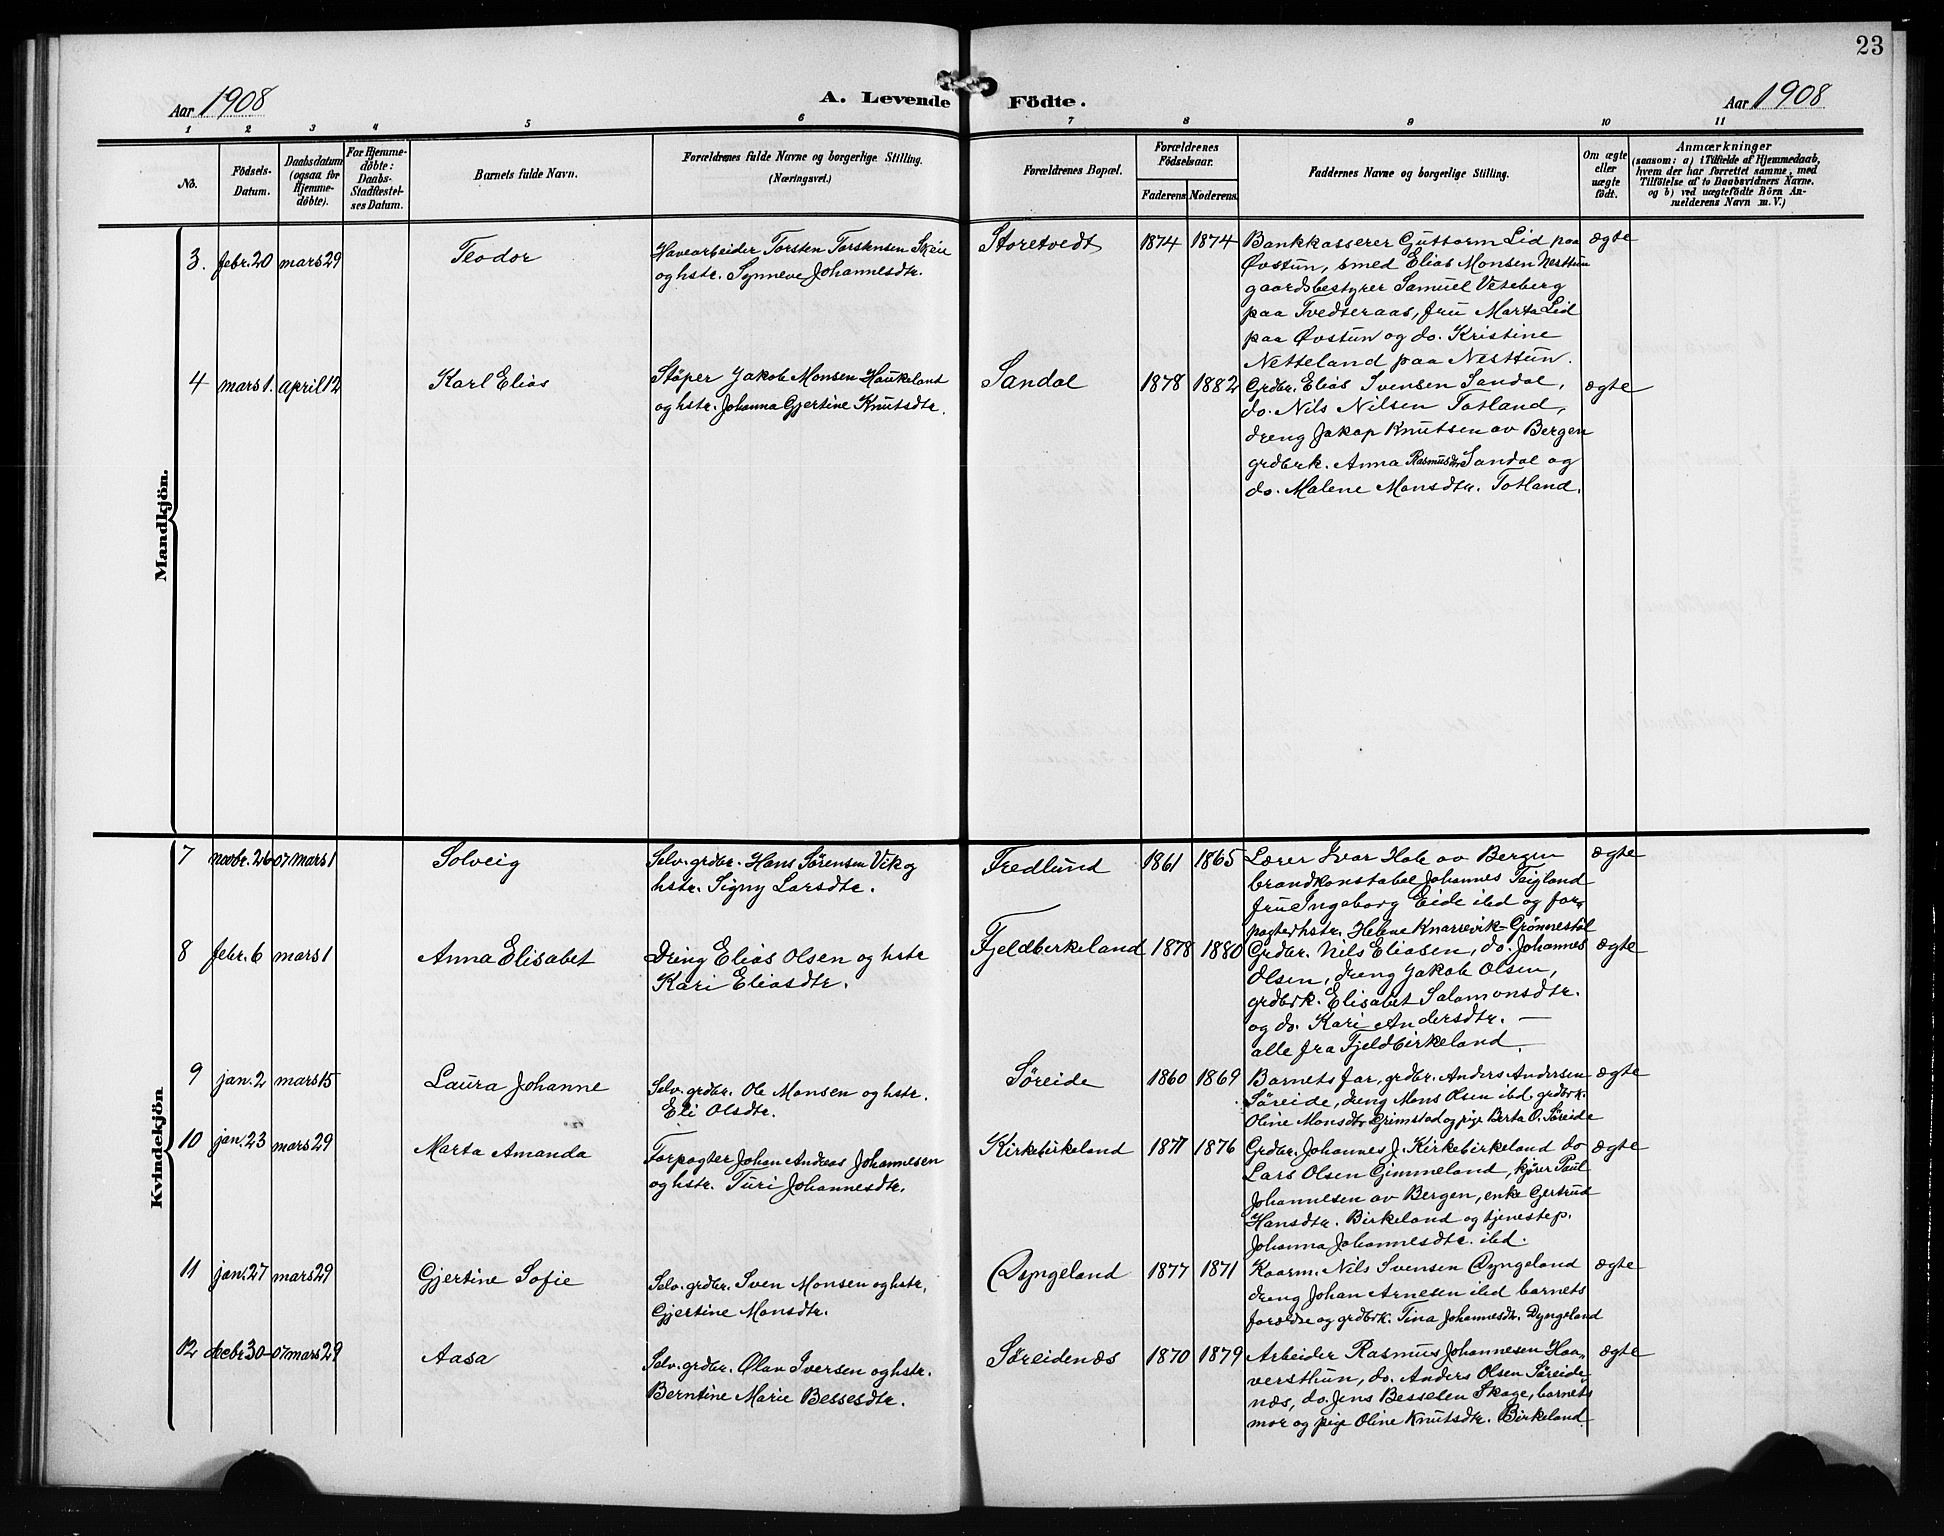 23
Aar 1908
A. Levende Födte.
Aar 1908
1 2 3 4 5 6 7 8 9 10 11
No.
Födsels-
Datum.
Daabsdatum
(ogsaa for
Hjemme-
døbte).
For Hjemme-
døbte:
Daabs-
Stadfæstel-
ses Datum.
Barnets fulde Navn.
Forældrenes fulde Navne og borgerlige Stilling.
(Næringsvei.)
Forældrenes Bopæl.
Forældrenes
Födselsaar.
Faderens Moderens.
Faddernes Navne og borgerlige Stilling.
Om ægte
eller
uægte
født.
Anmærkninger
(saasom: a) i Tilfælde af Hjemmedaab,
hvem der har forrettet samme, med
Tilföielse af to Daabsvidners Navne.
og b) ved uægtefödte Börn An-
melderens Navn m. V.)
Mandkjön.
3. febr. 20 mars 29
Teodor
Havearbeider Torsten Torstensen Skeie
og hstr. Synneve Johannesdtr.
Storetvedt
1874 1874
Bankkasserer Guttorm Lid paa
Øvstun, smed Elias Monsen Nesttun
gaardsbestyrer Samuel Veteberg
paa Tvedteraas, fru Marta Lid
paa Øvstun og do. Kristine
Netteland paa Nesttun.
ægte
4 mars 1. april 12
Karl Elias
Støper Jakob Monsen Haukeland
og hstr. Johanna Gjertine Knutsdtr.
Sandal
1878 1882
Grdbr. Elias Svensen Sandal,
do. Nils Nilsen Totland,
dreng Jakop Knutsen av Bergen
grdbrk. Anna Rasmusdtr Sandal og
do. Malene Monsdtr. Totland.
ægte
Kvindekjön
7 novbr. 26-07 mars 1
Solveig
Selv. grdbr. Hans Sørensen Vik og
hstr. Signy Larsdtr.
Fredlund
1861 1865
Lærer Ivar Hole av Bergen
brandkonstabel Johannes Teigland
fru Ingeborg Eide ibd og for-
pagterhstr. Helene Knarrevik-Grønnestøl
ægte
8 febr. 6 mars 1
Anna Elisabet
Dreng Elias Olsen og hstr
Kari Eliasdtr.
Fjeldbirkeland
1878 1880
Grdbr. Nils Eliasen, do. Johannes
Olsen, dreng Jakob Olsen,
grdbrk. Elisabet Salamonsdtr.
og do. Kari Andersdtr. —
alle fra Fjeldbirkeland.
ægte
9 jan. 2 mars 15
Laura Johanne
Selv. grdbr. Ole Monsen og hstr.
Eli Olsdtr.
Søreide
1860 1869
Barnets far, grdbr. Anders Andersen
Søreide, dreng Mons Olsen ibd, grdbrk.
Oline Monsdtr Grimstad og pige Berta O. Søreide
ægte
10 jan. 23 mars 29
Marta Amanda
Forpagter Johan Andreas Johannesen
og hstr. Turi Johannesdtr.
Kirkebirkeland
1877 1876
Grdbr. Johannes J. Kirkebirkeland do
Lars Olsen Gimmeland, kjører Paul
Johannesen av Bergen, enke Gertrud
Hansdtr. Birkeland og tjenestep.
Johanna Johannesdtr. ibd.
ægte
11 jan. 27 mars 29
Gjertine Sofie
Selv. grdbr. Sven Monsen og hstr.
Gjertine Monsdtr.
Dyngeland
1877 1871
Kaarm. Nils Svensen Dyngeland
dreng Johan Arnesen ibd barnets
foreldre og grdbrk. Tina Johannesdtr. Dyngeland
ægte
12 decbr 30-07 mars 29
Aasa
Selv. grdbr. Olav Iversen og hstr.
Berntine Marie Bessesdtr.
Søreidenæs
1870 1879
Arbeider Rasmus Johannesen Haa-
versthun, do. Anders Olsen Søreide-
næs, do. Jens Bessesen Skage, barnets
mor og pige Oline Knutsdtr. Birkeland
ægte